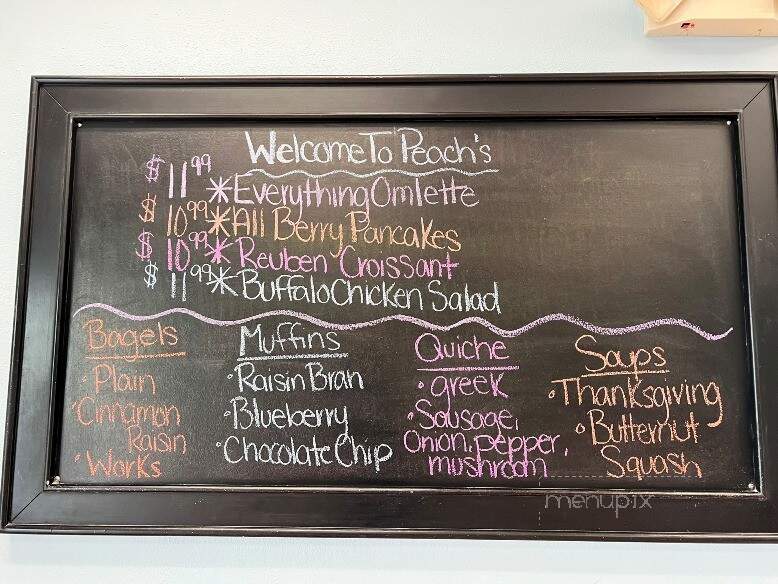 Welcome To Peach's
$11.99 *Everything Omlette
$10.99 *All Berry Pancakes
$10.99 *Reuben Croissant
$11.99 *Buffalo Chicken Salad
Bagels
• Plain
• Cinnamon
Raisin
• Works
Muffins
• Raisin Bran
• Blueberry
• Chocolate Chip
Quiche
• greek
• Sausage,
Onion, pepper,
mushroom
Soups
• Thanksgiving
• Butternut
Squash
menupix